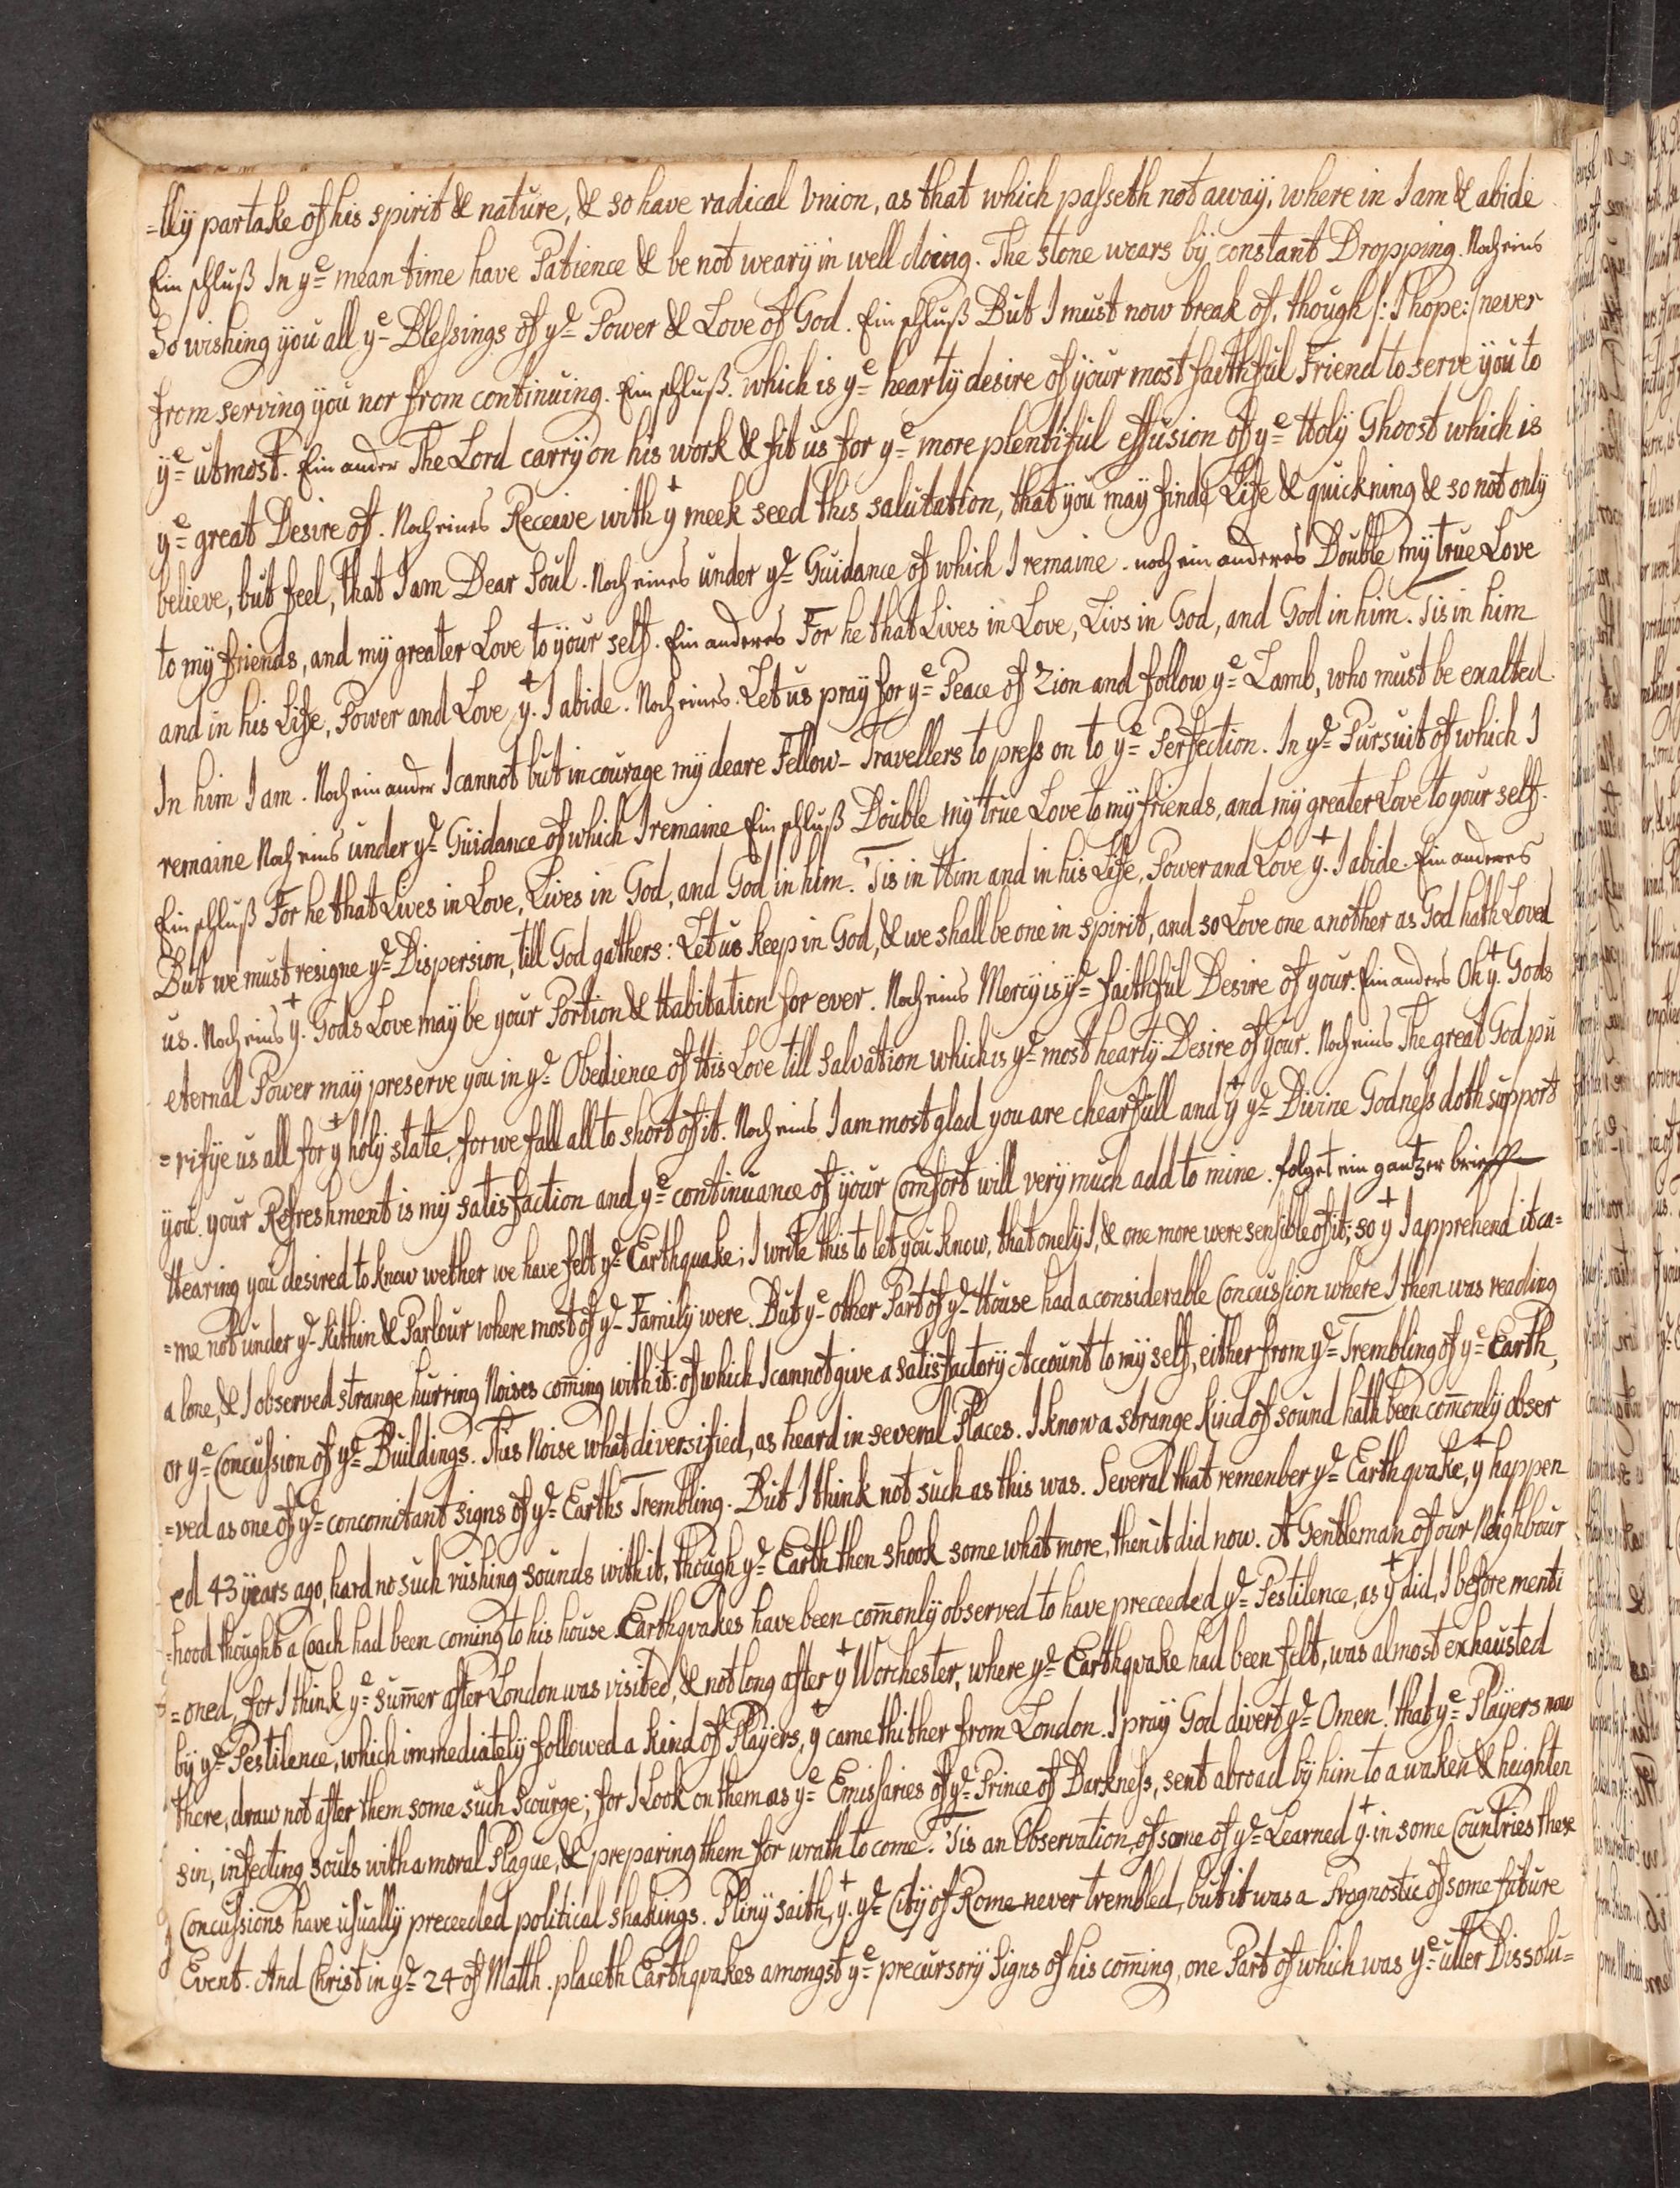 =lly partake of his spirit & nature, & so have radical Vnion, as that which passeth not away, where in I am & abide
Ein schluß In yͤ mean time have Patience & be not weary in well doing. The stone wears by constant Dropping. Noch eins
So wishing you all yͤ Blessings of yͤ Power & Love of God. Ein schluß But I must now break of, though /: I hope:/ never
from serving you nor from continuing. Ein schluß. which is yͤ hearty desire of your most faithful Friend to serve you to
yͤ utmost. Ein ander The Lord carry on his work & fit us for yͤ more plentiful effusion of yͤ Holy Ghoost which is
yͤ great Desire of. Noch eines Receive with yͭ meek seed this salutation, that you may finde Life & quickning & so not only
believe, but feel, that I am Dear Soul. Noch eines under yͤ Guidance of which I remaine. noch ein anderes Double my true Love
to my friends, and my greater Love to your self. Ein anderes For he that Lives in Love, Livs in God, and God in him. Tis in him
and in his Life, Power and Love yͭ. I abide. Noch eines. Let us pray for yͤ Peace of Zion and follow yͤ Lamb, who must be exalted.
In him I am. Noch ein ander I cannot but incourage my deare Fellow-Travellers to press on to yͤ Perfection. In yͤ Pursuit of which I
remaine Noch eins under yͤ Guidance of which I remaine Ein schluß Double my true Love to my friends, and my greater Love to your self.
Ein schluß For he that Lives in Love, Lives in God, and God in him. Tis in Him and in his Life, Power and Love yͭ. I abide. Ein anderes
But we must resigne yͤ Dispersion, till God gathers: Let us keep in God, & we shall be one in spirit, and so Love one another as God hath Loved
us. Noch eins yͭ. Gods Love may be your Portion & Habitation for ever. Noch eins Mercy is yͤ faithful Desire of your. Ein anders Oh yͭ. Gods
eternal Power may preserve you in yͤ Obedience of His Love till salvation which is yͤ most hearty Desire of your. Noch eins The great God pu
=rifye us all for yͭ holy state, for we fall all to short of it. Noch eins I am most glad you are chearfull and yͭ yͤ Divine Godness doth support
you. your Refreshment is my satisfaction and yͤ continuance of your Comfort will very much add to mine. folget ein gantzer brieff
Hearing you desired to know wether we have felt yͤ Earthquake; I write this to let you know, that onely I, & one more were sensible of it; so yͭ I apprehend it ca=
=me not under yͤ Kithin & Parlour where most of yͤ Family were. But yͤ other Part of yͤ House had a considerable Concussion where I then was reading
a lone, & I observed strange hurring Noises com̄ing with it: of which I cannot give a satisfactory Account to my self, either from yͤ Trembling of yͤ Earth,
or yͤ Concussion of yͤ Buildings. This Noise what diversified, as heard in several Places. I know a strange kind of sound hath been com̄only obser
=ved as one of yͤ concomitant signs of yͤ Earths Trembling. But I think not such as this was. Several that remenber yͤ Earthqvake, yͭ happen
ed 43 years ago, hard no such rushing sounds with it, though yͤ Earth then shook some what more, then it did now. A Gentleman of our Neighbour
=hood thought a Coach had been coming to his house. Earthqvakes have been com̄only observed to have preceeded yͤ Pestilence, as yͭ did, I before menti
=oned, for I think yͤ sum̄er after London was visited, & not long after yͭ Worchester, where yͤ Earthqvake had been felt, was almost exhausted
by yͤ Pestilence, which immediately followed a kind of Players, yͭ came thither from London. I pray God divert yͤ Omen! that yͤ Players now
there, draw not after them some such Scourge; for I Look on them as yͤ Emissaries of yͤ Prince of Darkness, sent abroad by him to a waken & heighten
sin, infecting souls with a moral Plague, & preparing them for wrath to come. Tis an Observation, of some of yͤ Learned yͭ. in some Countries these
Concussions have usually preceeded political shakings. Pliny saith, yͭ. yͤ City of Rome never trembled, but it was a Prognostic of some future
Event. And Christ in yͤ 24 of Matth. placeth Earthqvakes amongst yͤ precursory Signs of his com̄ing, one Part of which was yͤ utter Dissolu=